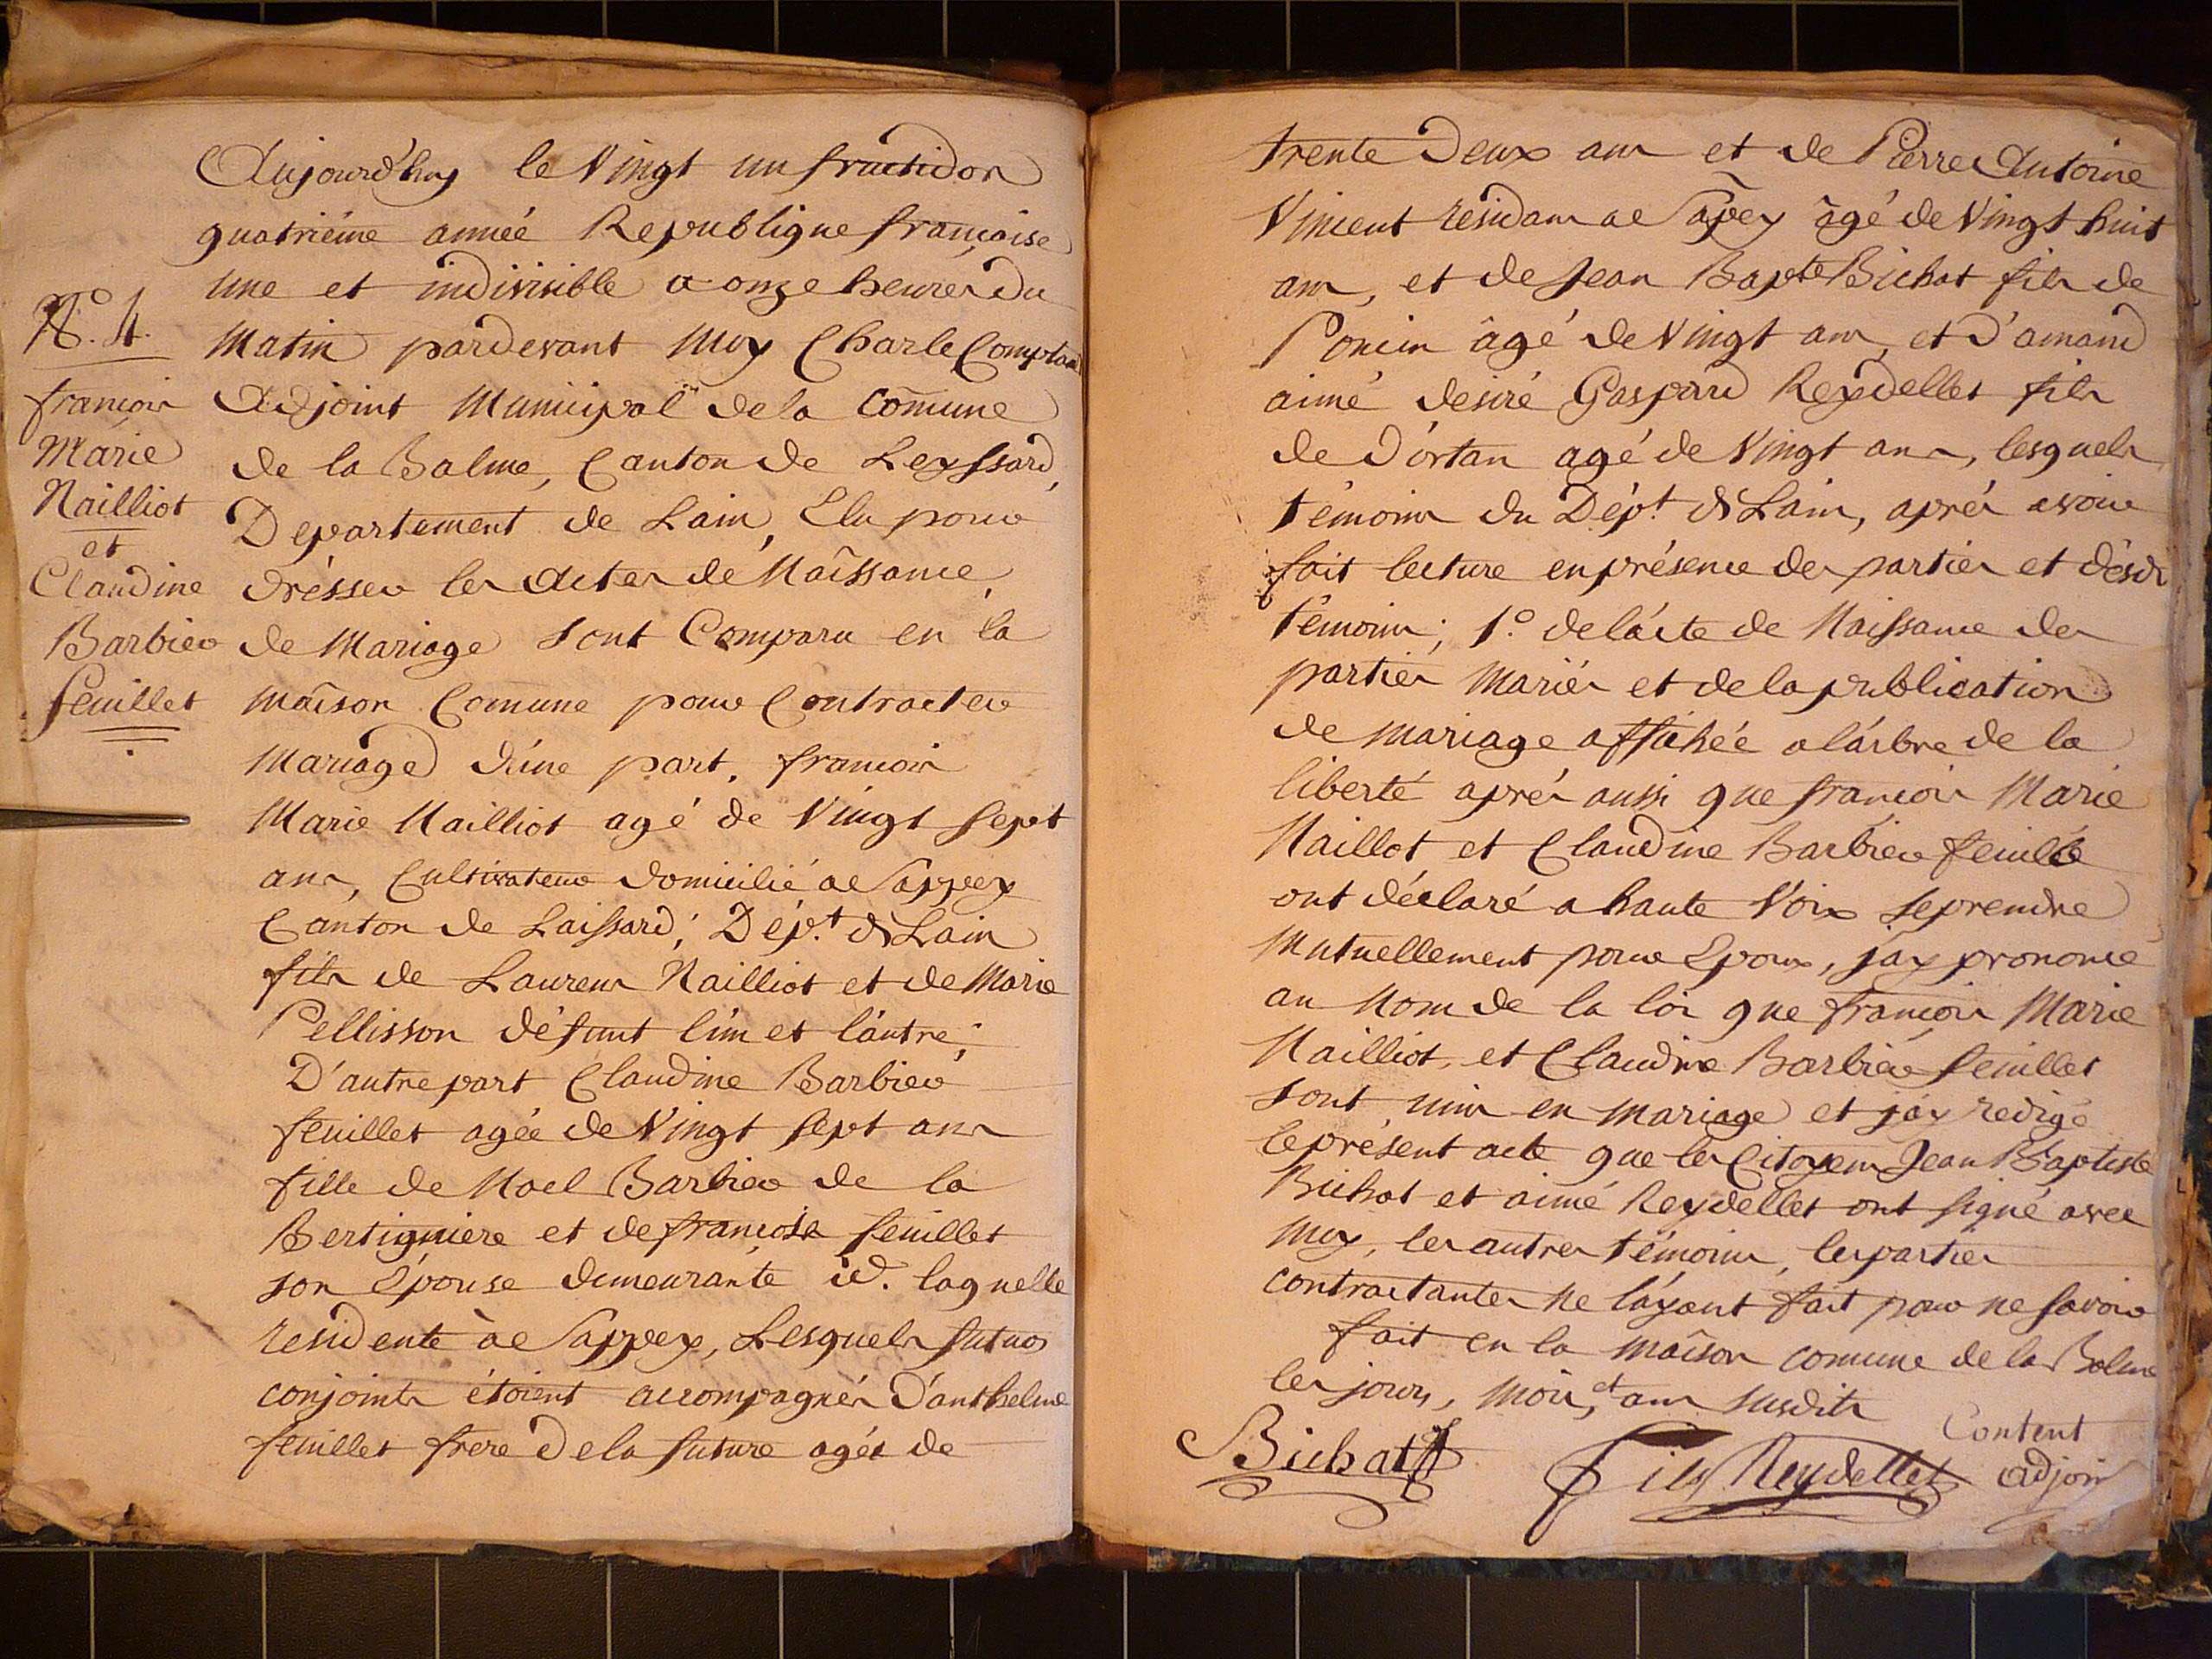 N.o 4.
francois
Marie
Nailliot
et
Claudine
Barbier
feuillet
Aujourd'huy le Vingt un fructidor
quatriéme année Republique françoise
une et indivisible a onze heures du
Matin pardevant Moy Charle
Adjoint Municipal de la Comune
de la Balme, Canton de Leyssard,
Departement de Lain, Elu pour
drésser les Actes de Naîssance,
de Mariage sont Comparu en la
Maîson Comune pour Contracter
Mariage d'une part. francois
Marie Nailliot agé de Vingt sept
ans, Cultivateur domicilié ae Sappey
Canton de Laissard; Dépt. de Lain
fils de Laurens Nailliot et de Marie
Pellisson défunt l'un et l'autre;
D'autre part Claudine Barbier
feuillet agée de Vingt sept ans
fille de Noel Barbier de la
Bertigniere et de françoise feuillet
son Epouse demeurante id. laquelle
residente àe Sappey, Lesquels futurs
conjoints étoient accompagnés d'anthelme
feuillet frere de la future agés de
trente Deux ans et de Pierre Antoine
Vincent résidans ae Sapey âgé de Vingt huit
ans, et de Jean Bapte Bichat fils de
Poncin âgé de Vingt ans, et d'amand
aimé desiré Gaspard Reydellet fils
de d'ortan agé de Vingt ans, lesquels
témoins du Dépt. de Lain, aprés avoir
fait lecture en présence des parties et desdt
témoins; 1.o de l'acte de Naissance des
parties Mariés et de la publication
de mariage affichée a l'arbre de la
liberté aprés aussi que francois Marie
Naillot et Claudine Barbier feuillet
ont déclaré a haute Voix se prendre
Mutuellement pour Epoux, jay prononcé
au Nom de la loi que francois Marie
Nailliot, et Claudine Barbier feuillet
sont unis en mariage et jay redigé
le présent acte que les Citoyens Jean Baptiste
Bichat et aimé Reydellet ont signé avec
Moy, les autres témoins, les parties
contractantes ne l'ayant fait pour ne savoir
fait en la Maîson comune de la Balme
les jours, mois, et ans susdits
Bichat fils Reydellet Content
adjoin